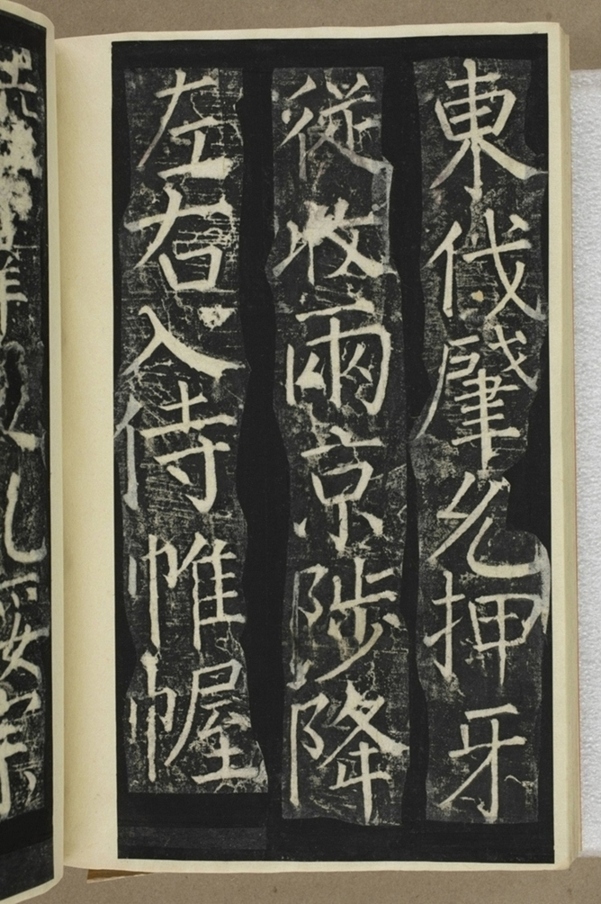 東伐肇允押牙
從收兩京陟降
左右入侍帷幄